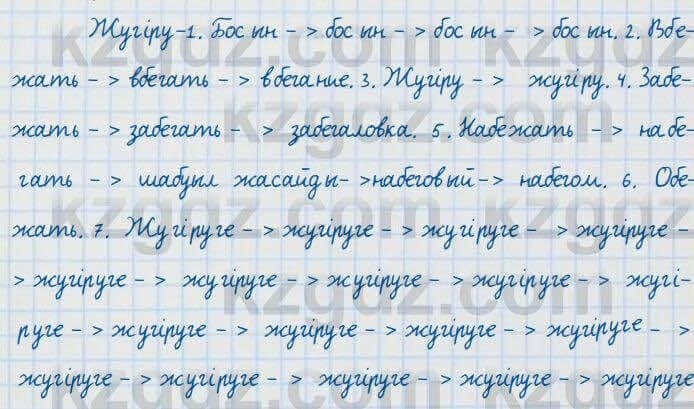 Жүгіру-1. Босын - > босын - > босын - > босын. 2. Вбе-
жать - > вбегать - > вбегание. 3. Жүгіру - > жүгіру. 4. Забе-
жать - > забегать - > забегаловка. 5. Набежать - > набе-
гать - > шабуыл жасайды- >набеговый-> набегом. 6. Обе-
жать. 7. Жүгіруге - > жүгіруге - > жүгіруге - > жүгіруге -
> жүгіруге - > жүгіруге - > жүгіруге - > жүгіруге - > жүгі-
руге - > жүгіруге - > жүгіруге - > жүгіруге - > жүгіруге - >
жүгіруге - > жүгіруге - > жүгіруге - > жүгіруге - > жүгіруге
kzgdz.com